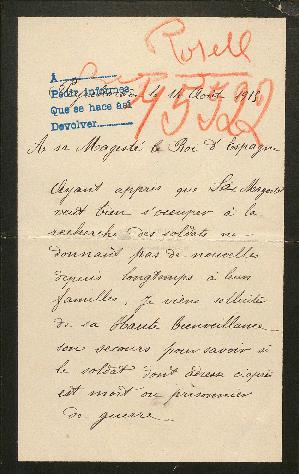 Rosell
À
Pedir informes
Que se hace así
Devolver
le 14 Août 1915
A sa Magesté le Roi d'Espagne
Ayant appris que Sa Magesté
veut bien s'occuper à la
recherche des soldats ne
donnant pas de nouvelles
depuis longtemps à leur
familles. Je viens solliciter
de sa Haute bienveillance
son secours pour savoir si
le soldat dont adresse ci-après
est mort ou prisonnier
de guerre